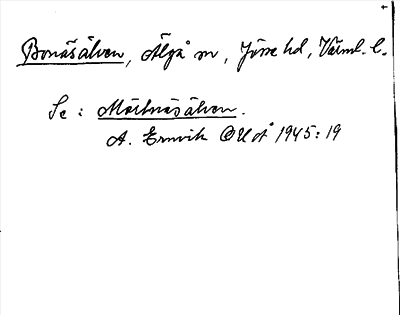 Bonäsälven, Älgå sn, Jösse hd, Värml. l.
Se: Mörtnäsälven.
A. Ernvik OUÅ 1945:19